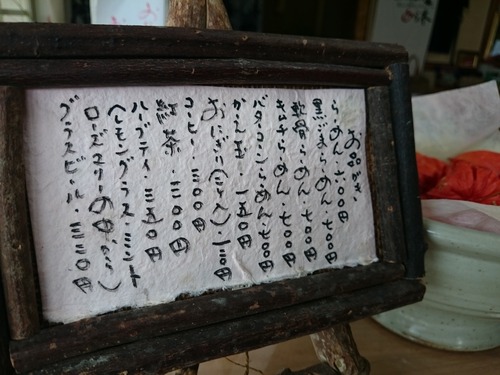 お品がき
らーめん・六〇〇円
黒ごまらーめん・七〇〇円
軟骨らーめん・七〇〇円
キムチらーめん・七〇〇円
バターコーンらーめん・七〇〇円
かえ玉・一五〇円
おにぎり(二こ)一三〇円
コーヒー・三〇〇円
紅茶・三〇〇円
ハーブティ・三五〇円
(レモングラス・ミント
ローズマリーの中から)
グラスビール・三三〇円